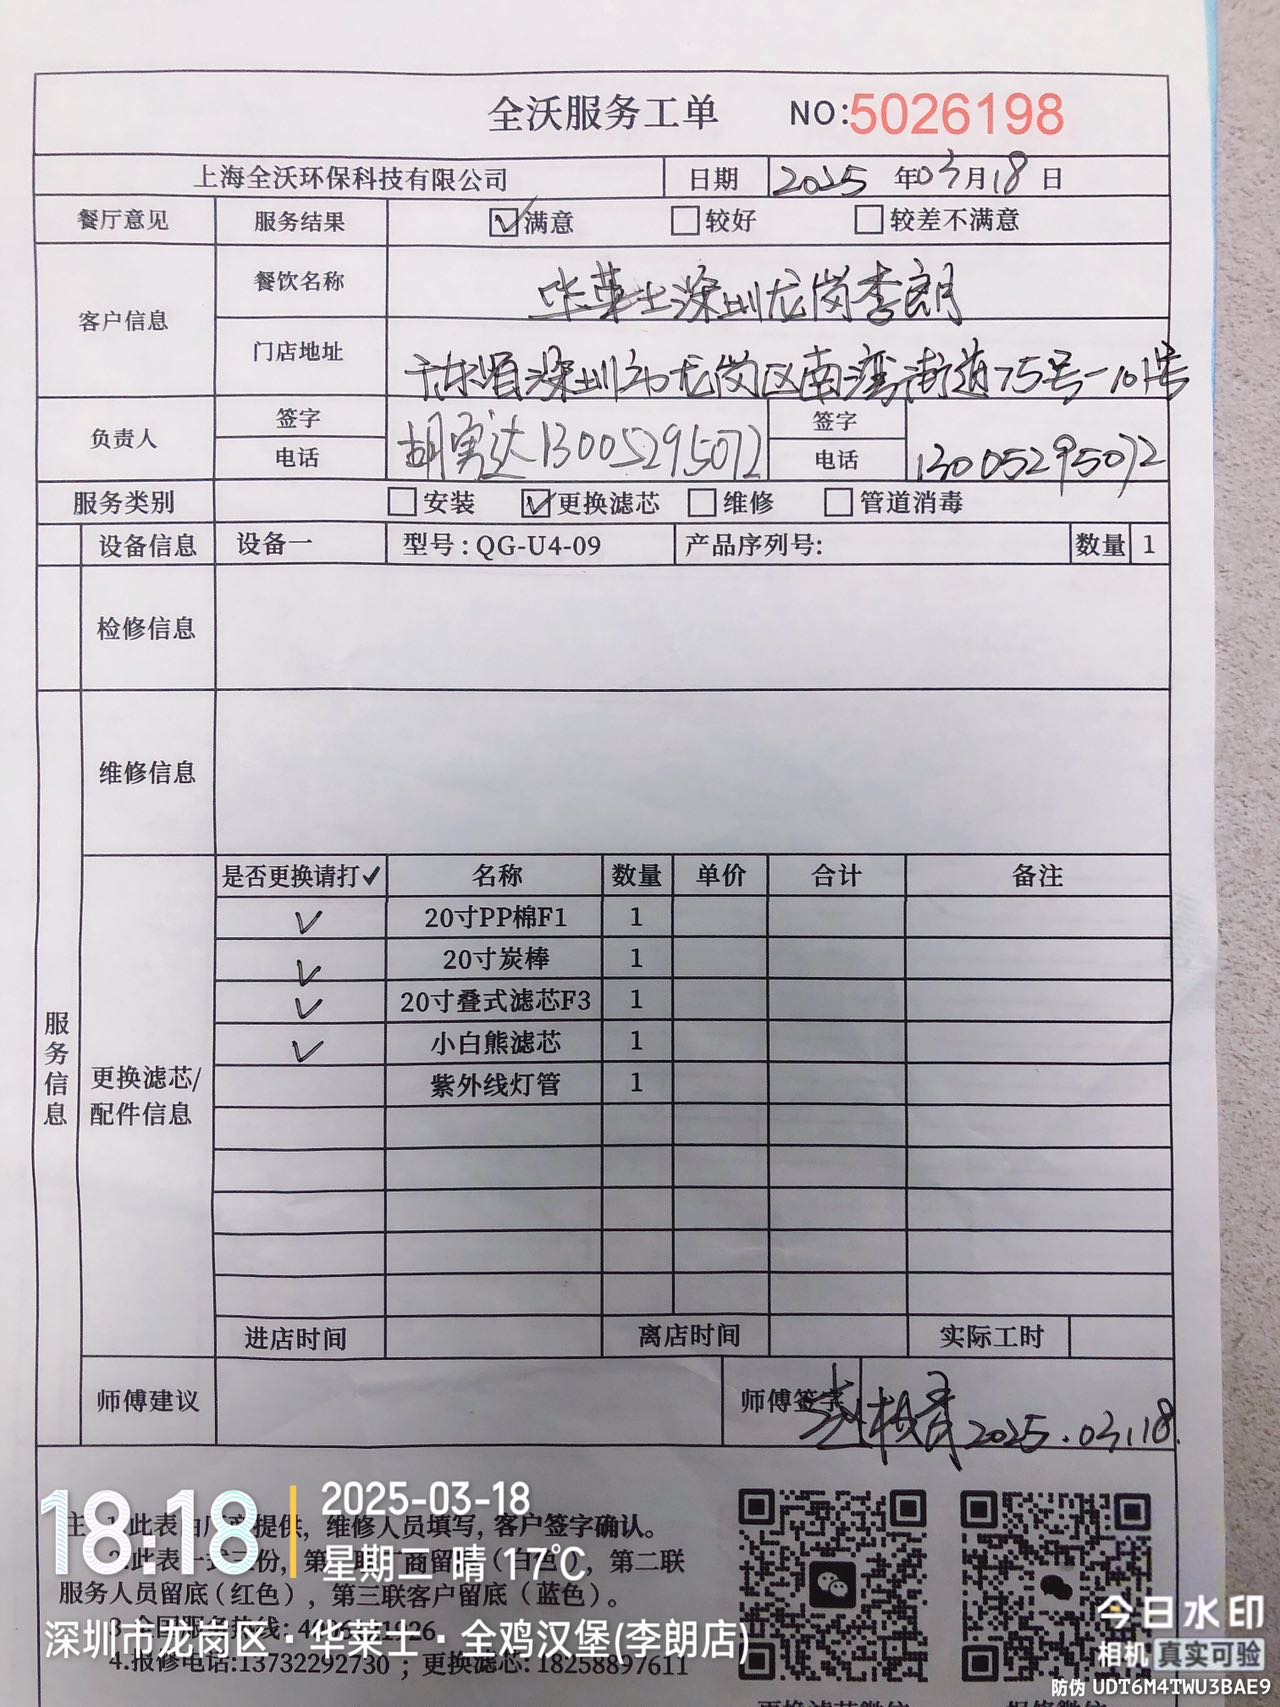 全沃服务工单 NO:5026198
上海全沃环保科技有限公司 日期 2025年03月18日
餐厅意见 服务结果 ☑满意 □较好 □较差不满意
客户信息 餐饮名称 华莱士深圳龙岗李朗
门店地址 广东省深圳市龙岗区南湾街道75号-101号
负责人 签字 电话 胡 达13005295072 签字 电话 13005295072
服务类别 □安装 ☑更换滤芯 □维修 □管道消毒
设备信息 设备一 型号:QG-U4-09 产品序列号: 数量 1
检修信息
维修信息
服务信息
更换滤芯/配件信息
是否更换请打✓ 名称 数量 单价 合计 备注
✓ 20寸PP棉F1 1
✓ 20寸炭棒 1
✓ 20寸叠式滤芯F3 1
✓ 小白熊滤芯 1
紫外线灯管 1
进店时间 离店时间 实际工时
师傅建议 师傅签字 2025.03.18.
注 此表 提供, 维修人员填写, 客户签字确认。
2.此表一式三份, 第一联厂商留底(白色), 第二联
服务人员留底(红色), 第三联客户留底(蓝色)。
3.全国服务热线:
4.报修电话:13732292730 ; 更换滤芯: 18258897611
18:18
2025-03-18
星期二 晴 17℃
深圳市龙岗区·华莱士·全鸡汉堡(李朗店)
今日水印
相机 真实可验
防伪 UDT6M4TWU3BAE9